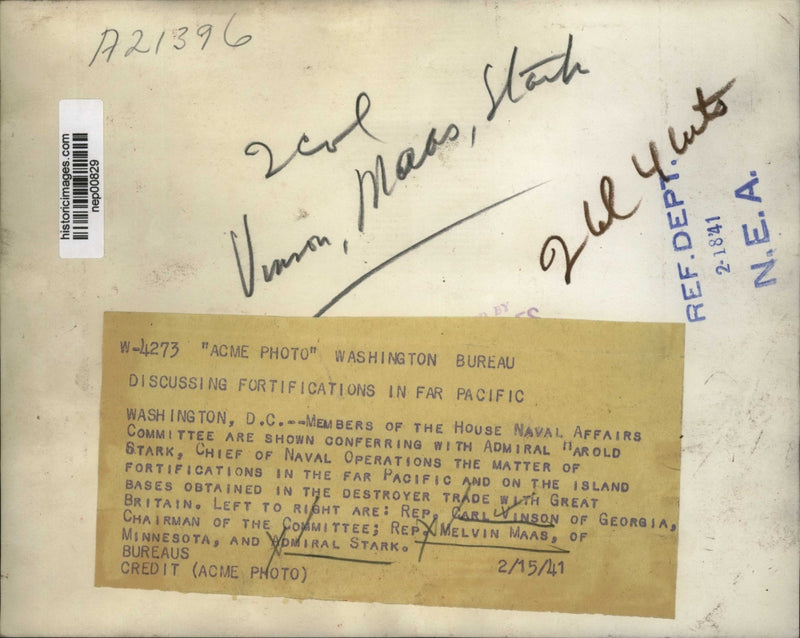 A21396
historicimages.com
nep00829
2 col
Vinson, Maas, Stark
2 col 4 cuts
REF. DEPT.
2-18'41
N.E.A.
BY
W-4273 "ACME PHOTO" WASHINGTON BUREAU
DISCUSSING FORTIFICATIONS IN FAR PACIFIC
WASHINGTON, D.C.--MEMBERS OF THE HOUSE NAVAL AFFAIRS
COMMITTEE ARE SHOWN CONFERRING WITH ADMIRAL HAROLD
STARK, CHIEF OF NAVAL OPERATIONS THE MATTER OF
FORTIFICATIONS IN THE FAR PACIFIC AND ON THE ISLAND
BASES OBTAINED IN THE DESTROYER TRADE WITH GREAT
BRITAIN. LEFT TO RIGHT ARE: REP. CARL VINSON OF GEORGIA,
CHAIRMAN OF THE COMMITTEE; REP. MELVIN MAAS, OF
MINNESOTA, AND ADMIRAL STARK.
BUREAUS 2/15/41
CREDIT (ACME PHOTO)